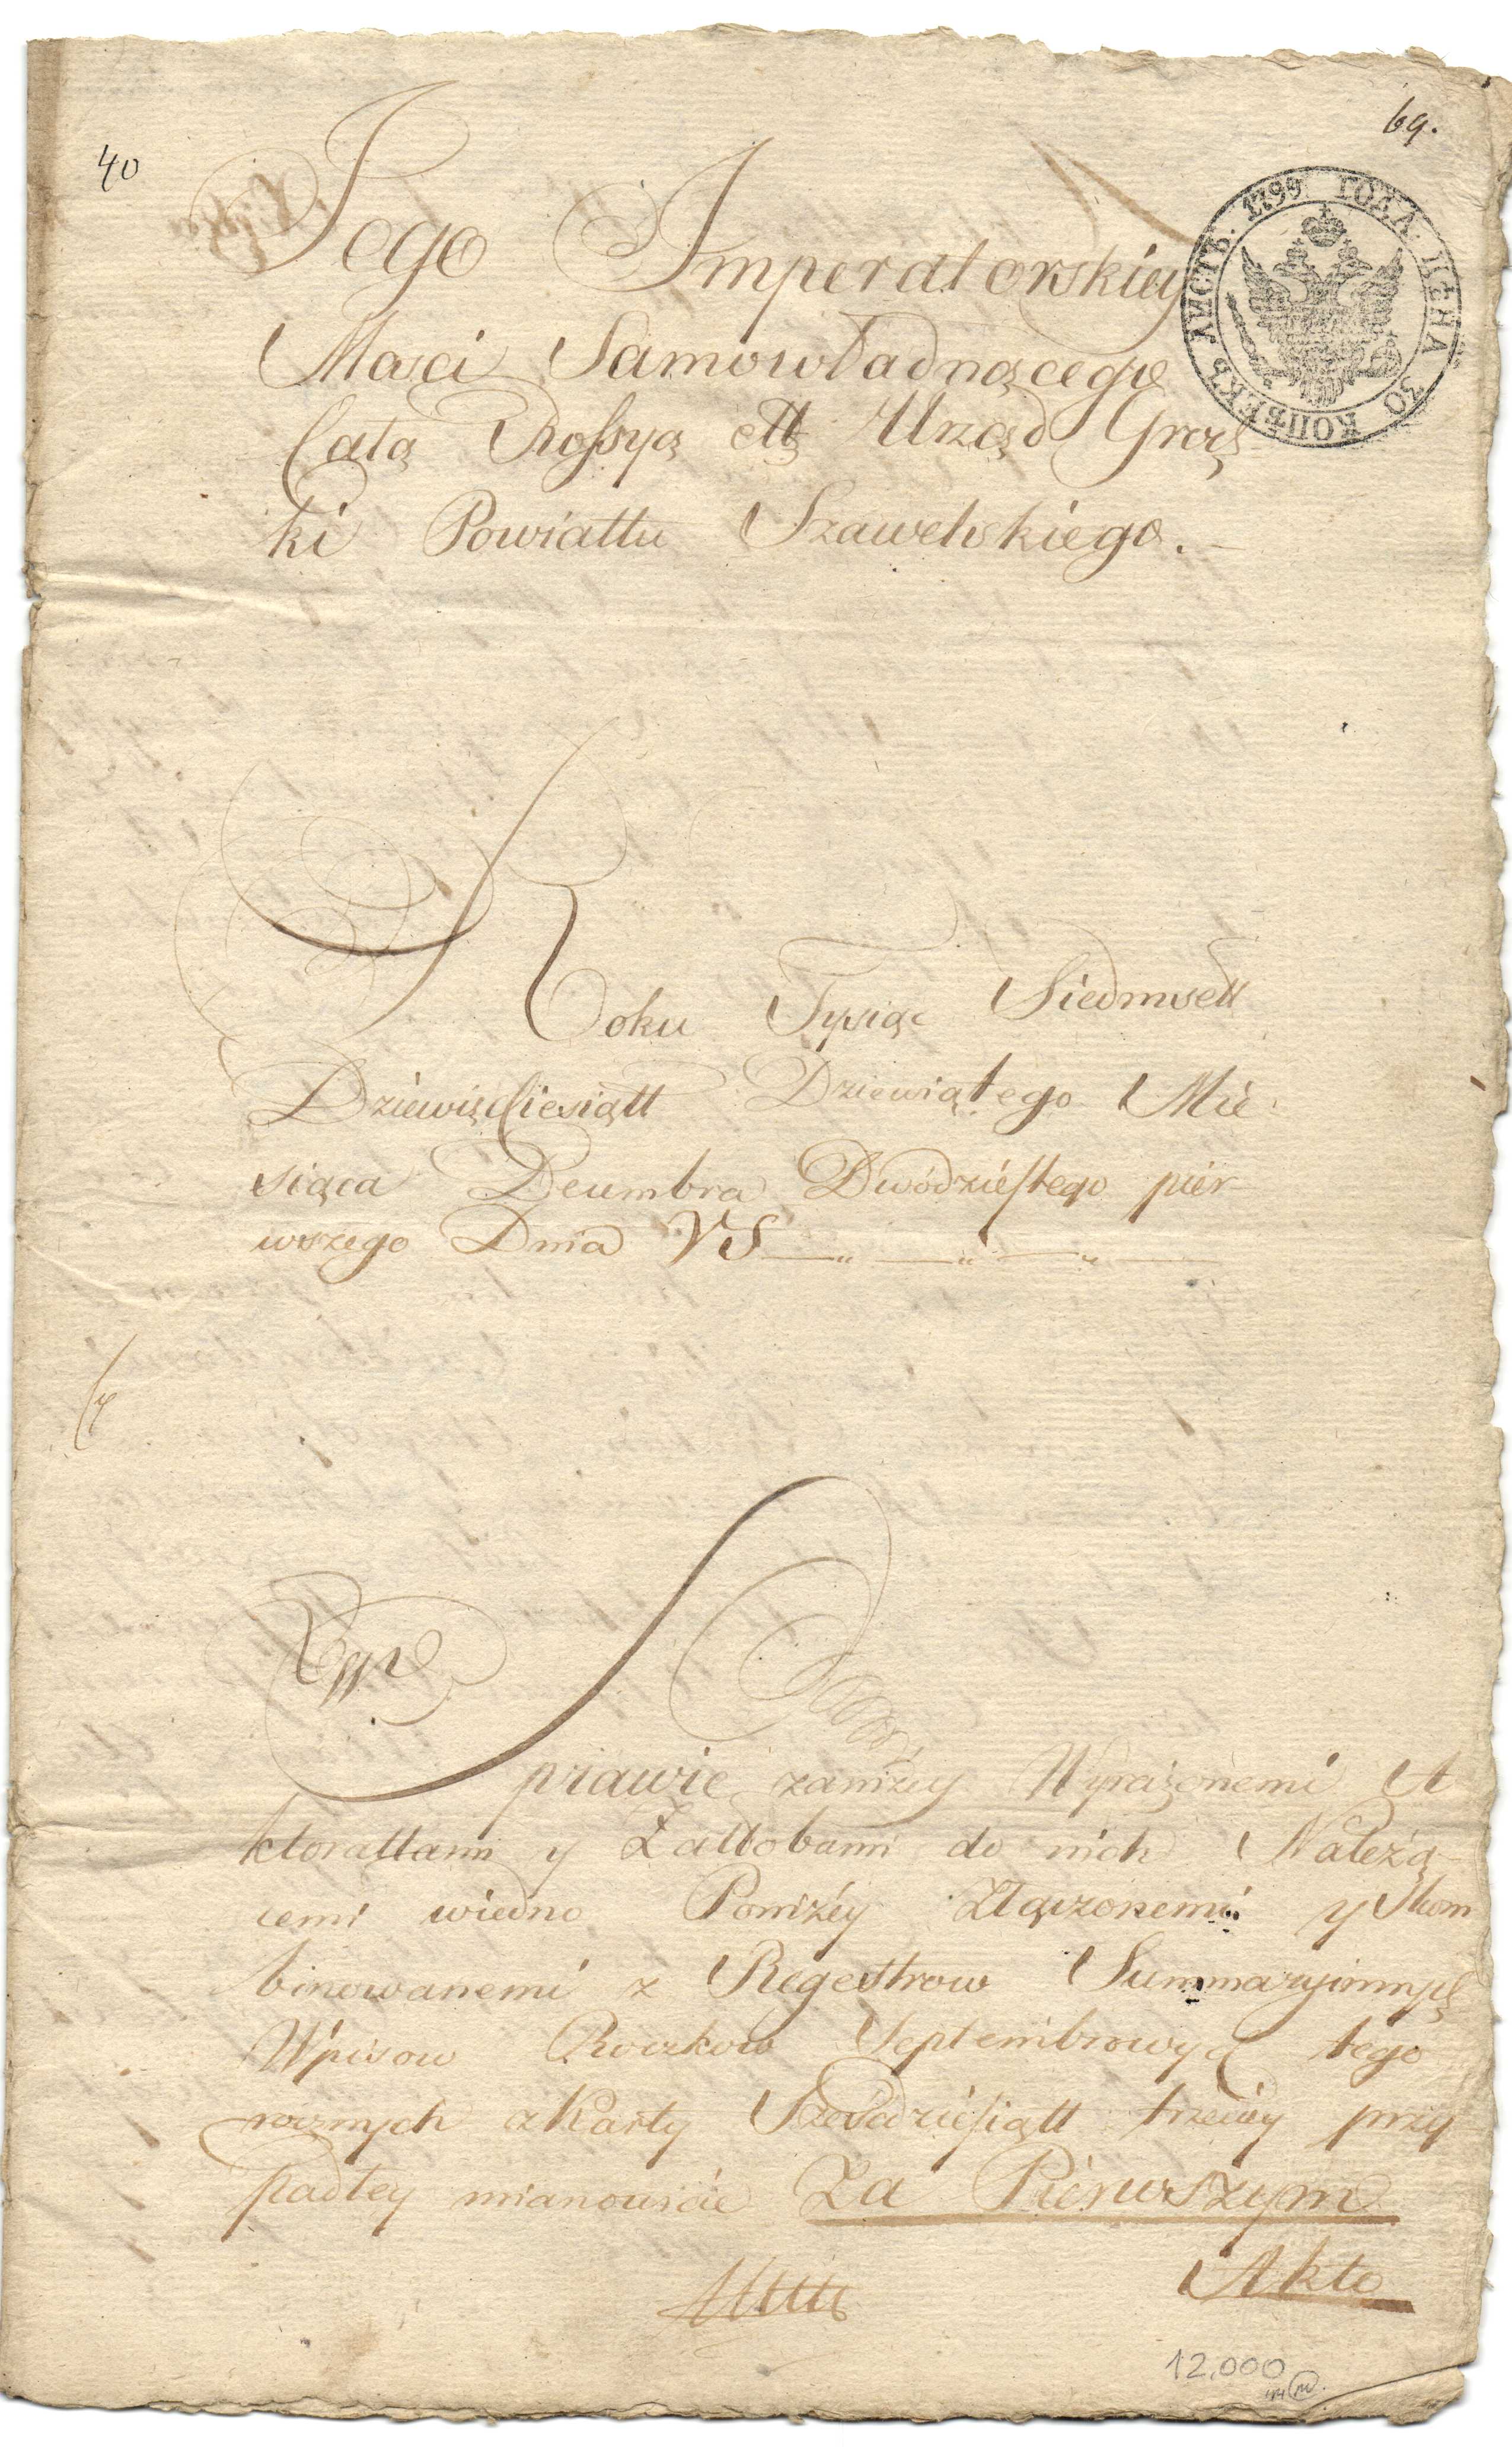 40
69.
ЛИСТЪ. 1799 ГОДА. ЦѢНА 30 КОПѢЕКЪ
Jego Imperatorskiey
Mości Samowładnącego
Całą Rossyą ettc Urząd Grodz
ki Powiattu Szawelskiego.
Roku Tysiąc Siedmsett
Dziewięćdziesiątt Dziewiątego Mie
siąca Decembra Dwódziestego pier
wszego Dnia VS
Sprawie zaniżey Wyrażonemi A
ktorattami y Załłobami do nich Należą
cemi wiedno Poniżey Złączonemi y Skom
binowanemi z Regestrow Summaryinnych
Wpisow Roczkow Septembrowych tego
rocznych z Karty Sześdziesiątt trzeciey przy
padłey mianowicie Za Pierwszym
Akto
12,000